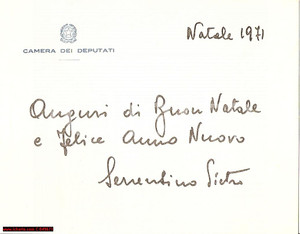 Natale 1971
CAMERA DEI DEPUTATI
Auguri di Buon Natale
e Felice Anno Nuovo
Serrentino Pietro